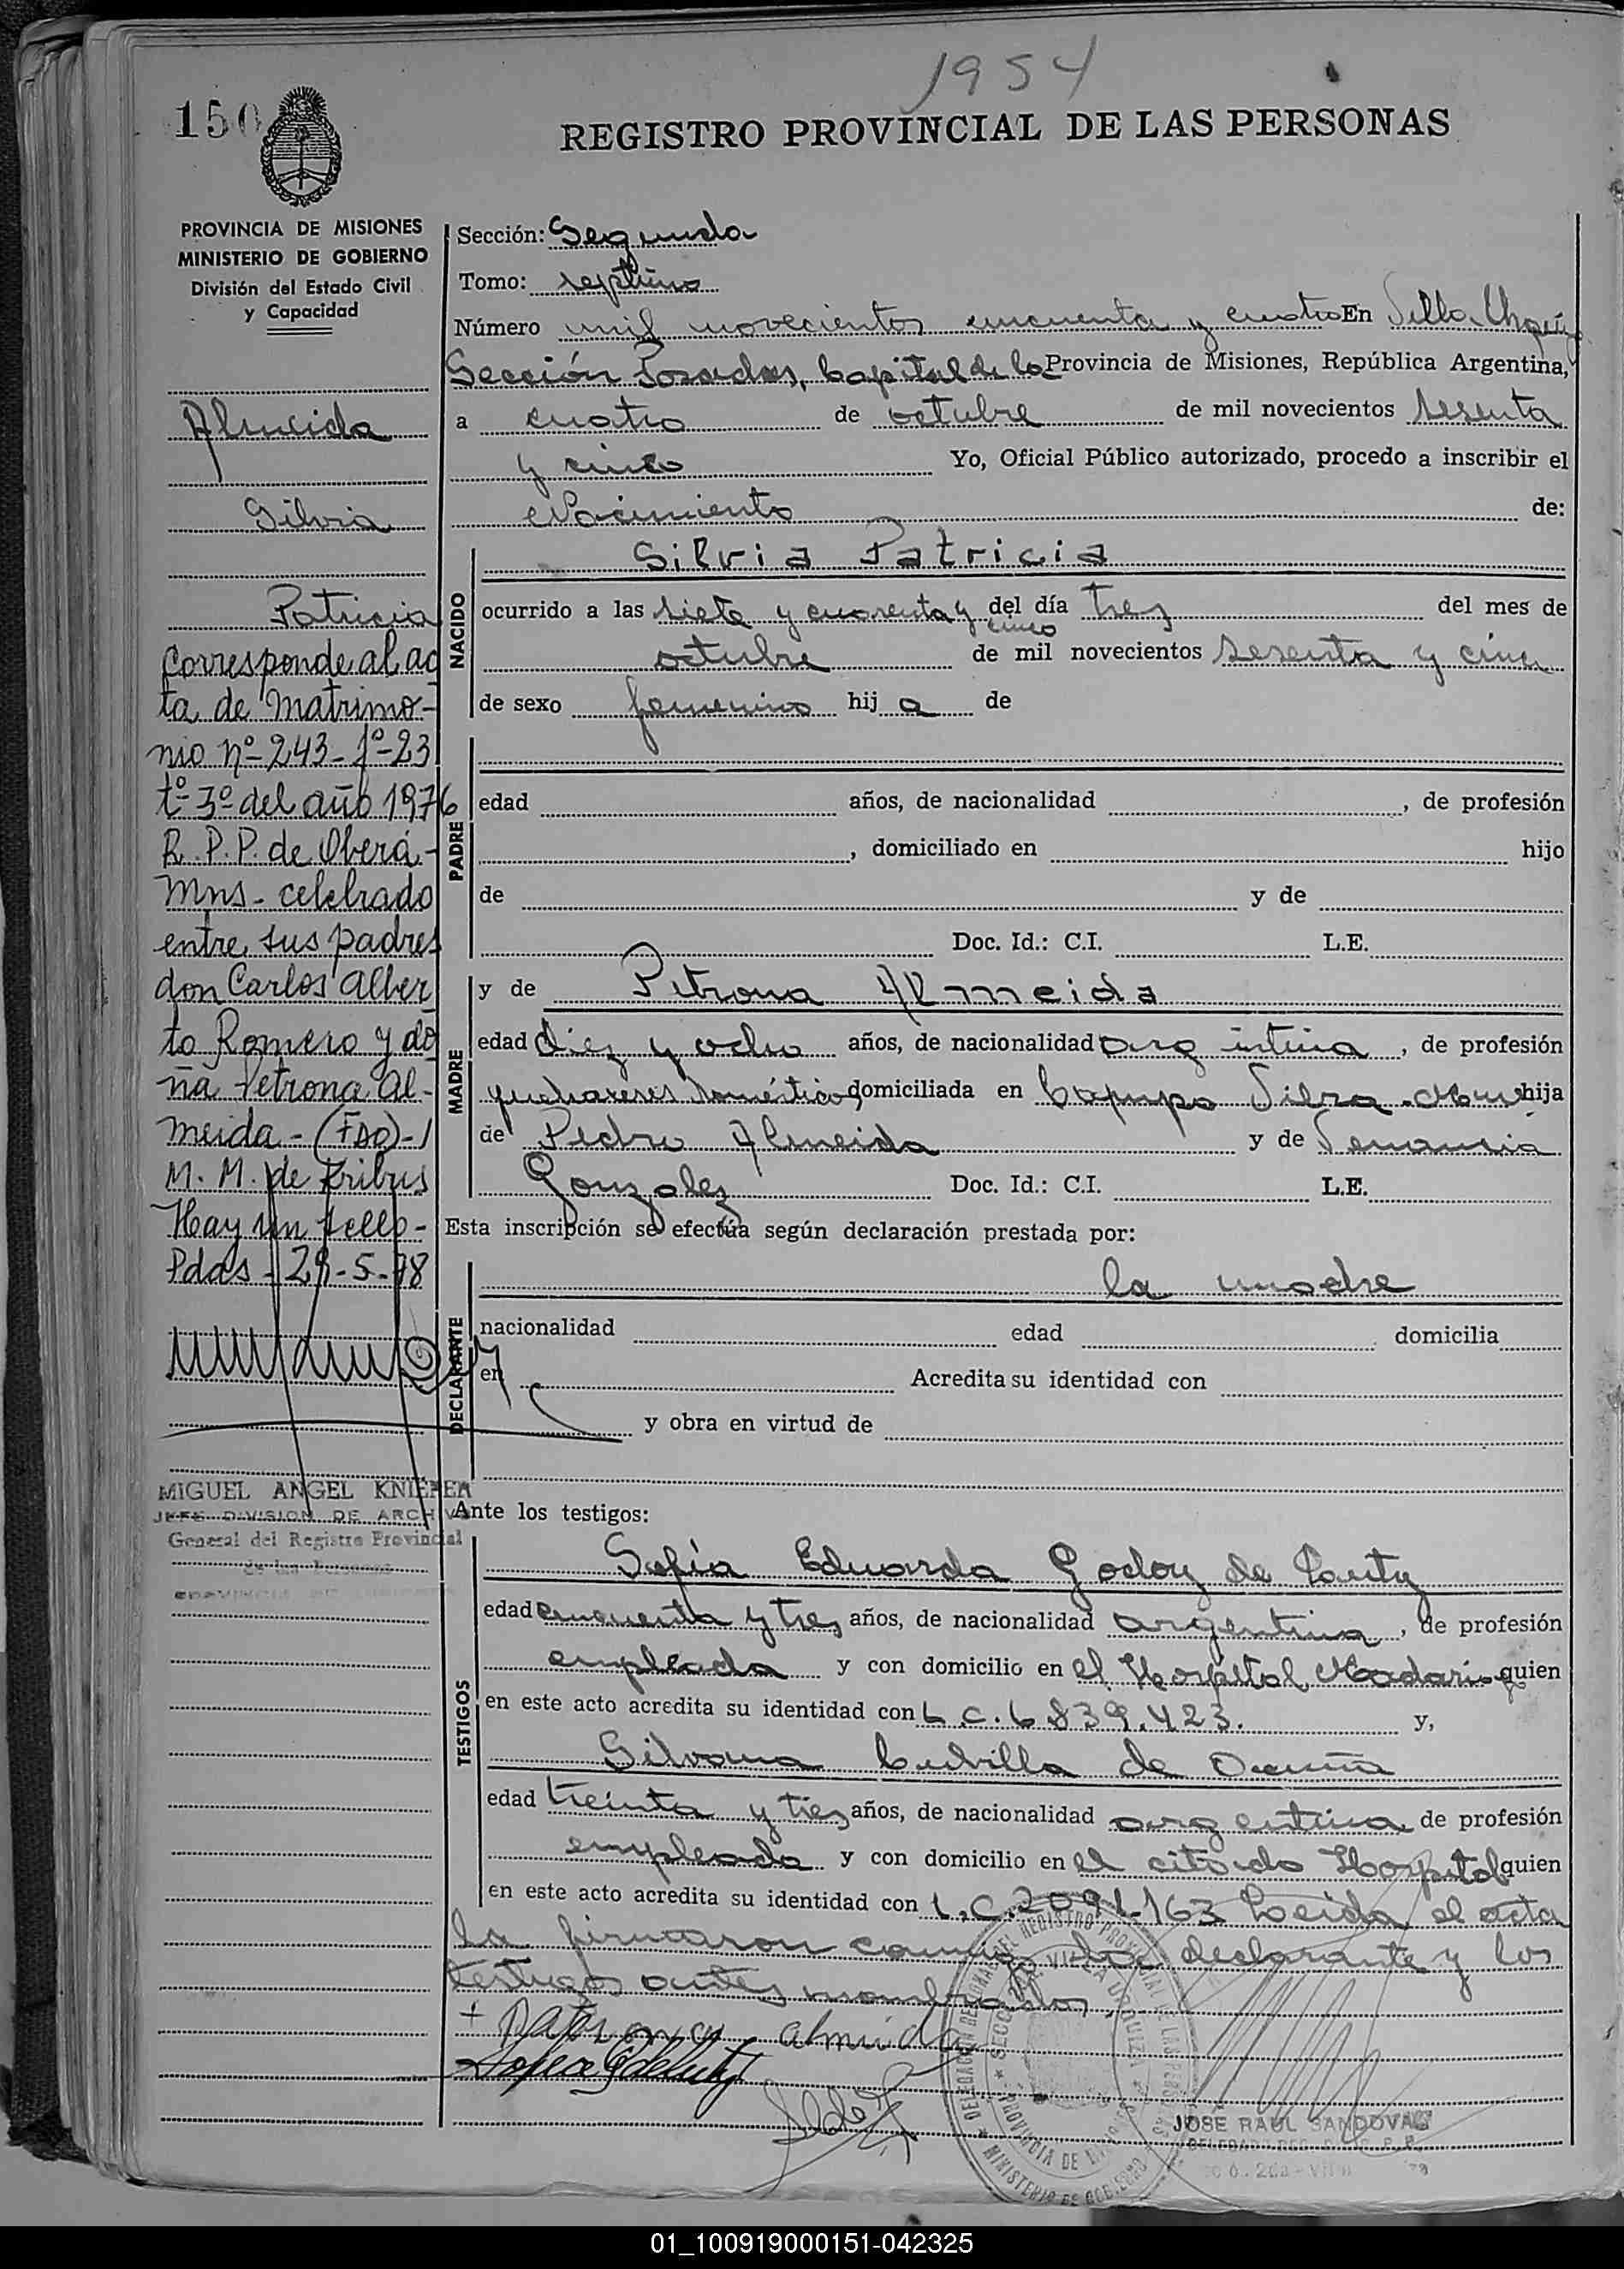 1954
150
REGISTRO PROVINCIAL DE LAS PERSONAS
PROVINCIA DE MISIONES
MINISTERIO DE GOBIERNO
División del Estado Civil
y Capacidad
Almeida
Silvia
Patricia
Corresponde al ac
ta de matrimo-
nio nº 243-fº-23
tº 3º del año 1976
R.P.P. de Oberá-
Mns- celebrado
entre sus padres
don Carlos Alber
to Romero y do
ña Petrona Al-
meida-(FDO)-
M. M. de Kribus
Hay un sello-
Pdas-29-5-78
MIGUEL ANGEL
JEFE DIVISION DE ARCHIVO
General del Registro Provincial
de las Personas
Sección: Segunda
Tomo: septimo
Número mil novecientos cincuenta y cuatro En Villa Urquiza
Sección Posadas, Capital de la Provincia de Misiones, República Argentina,
a cuatro de octubre de mil novecientos sesenta
y cinco Yo, Oficial Público autorizado, procedo a inscribir el
Nacimiento de:
NACIDO
Silvia Patricia
ocurrido a las siete y cuarenta y cinco del día tres del mes de
octubre de mil novecientos sesenta y cinco
de sexo femenino hij a de
PADRE
edad años, de nacionalidad , de profesión
, domiciliado en hijo
de y de
Doc. Id.: C.I. L.E.
MADRE
y de Petrona Almeida
edad diez y ocho años, de nacionalidad argentina, de profesión
quehaceres domésticos domiciliada en Campo hija
de Pedro Almeida y de
Gonzalez Doc. Id.: C.I. L.E.
Esta inscripción se efectúa según declaración prestada por:
DECLARANTE
la madre
nacionalidad edad domicilia
en Acredita su identidad con
y obra en virtud de
Ante los testigos:
TESTIGOS
Sofia Eduarda Godoy de
edad cincuenta y tres años, de nacionalidad argentina, de profesión
empleada y con domicilio en el Hospital Madariaga quien
en este acto acredita su identidad con L.C. 6839.423. y,
Silvana de Acuña
edad treinta y tres años, de nacionalidad argentina de profesión
empleada y con domicilio en el citado Hospital quien
en este acto acredita su identidad con L.C. 2091.163 Leida el acta
la firmaron conmigo la declarante y los
testigos antes nombrados,
+ Patrona almida
JOSE RAUL SANDOVAL
01_100919000151-042325